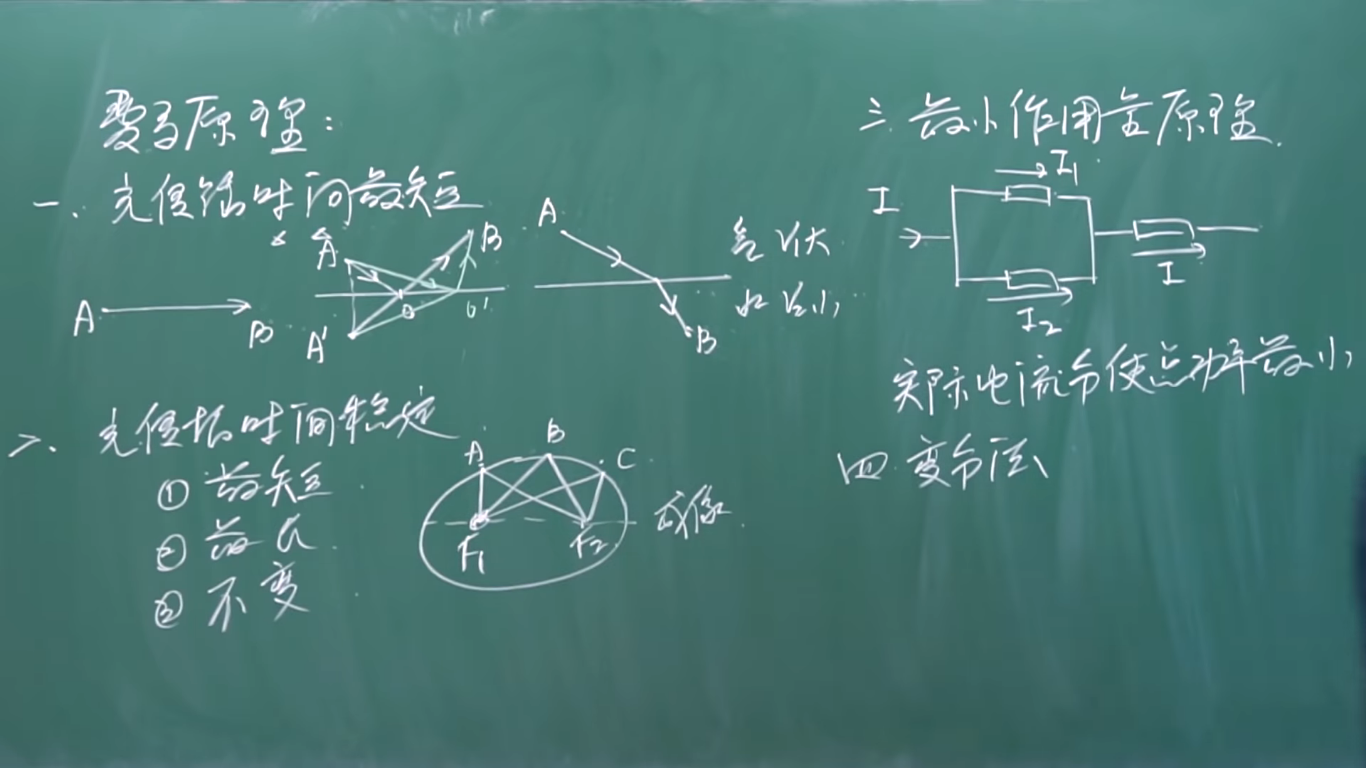 费马原理:
一. 光传播时间最短
A B
A B A' O O'
A B
气 V大
水 V小
二. 光传播时间稳定
① 最短
② 最长
③ 不变
A B C F₁ F₂
成像
三. 最小作用量原理.
I I₁ I₂ I
实际电流分使总功率最小
四 变分法